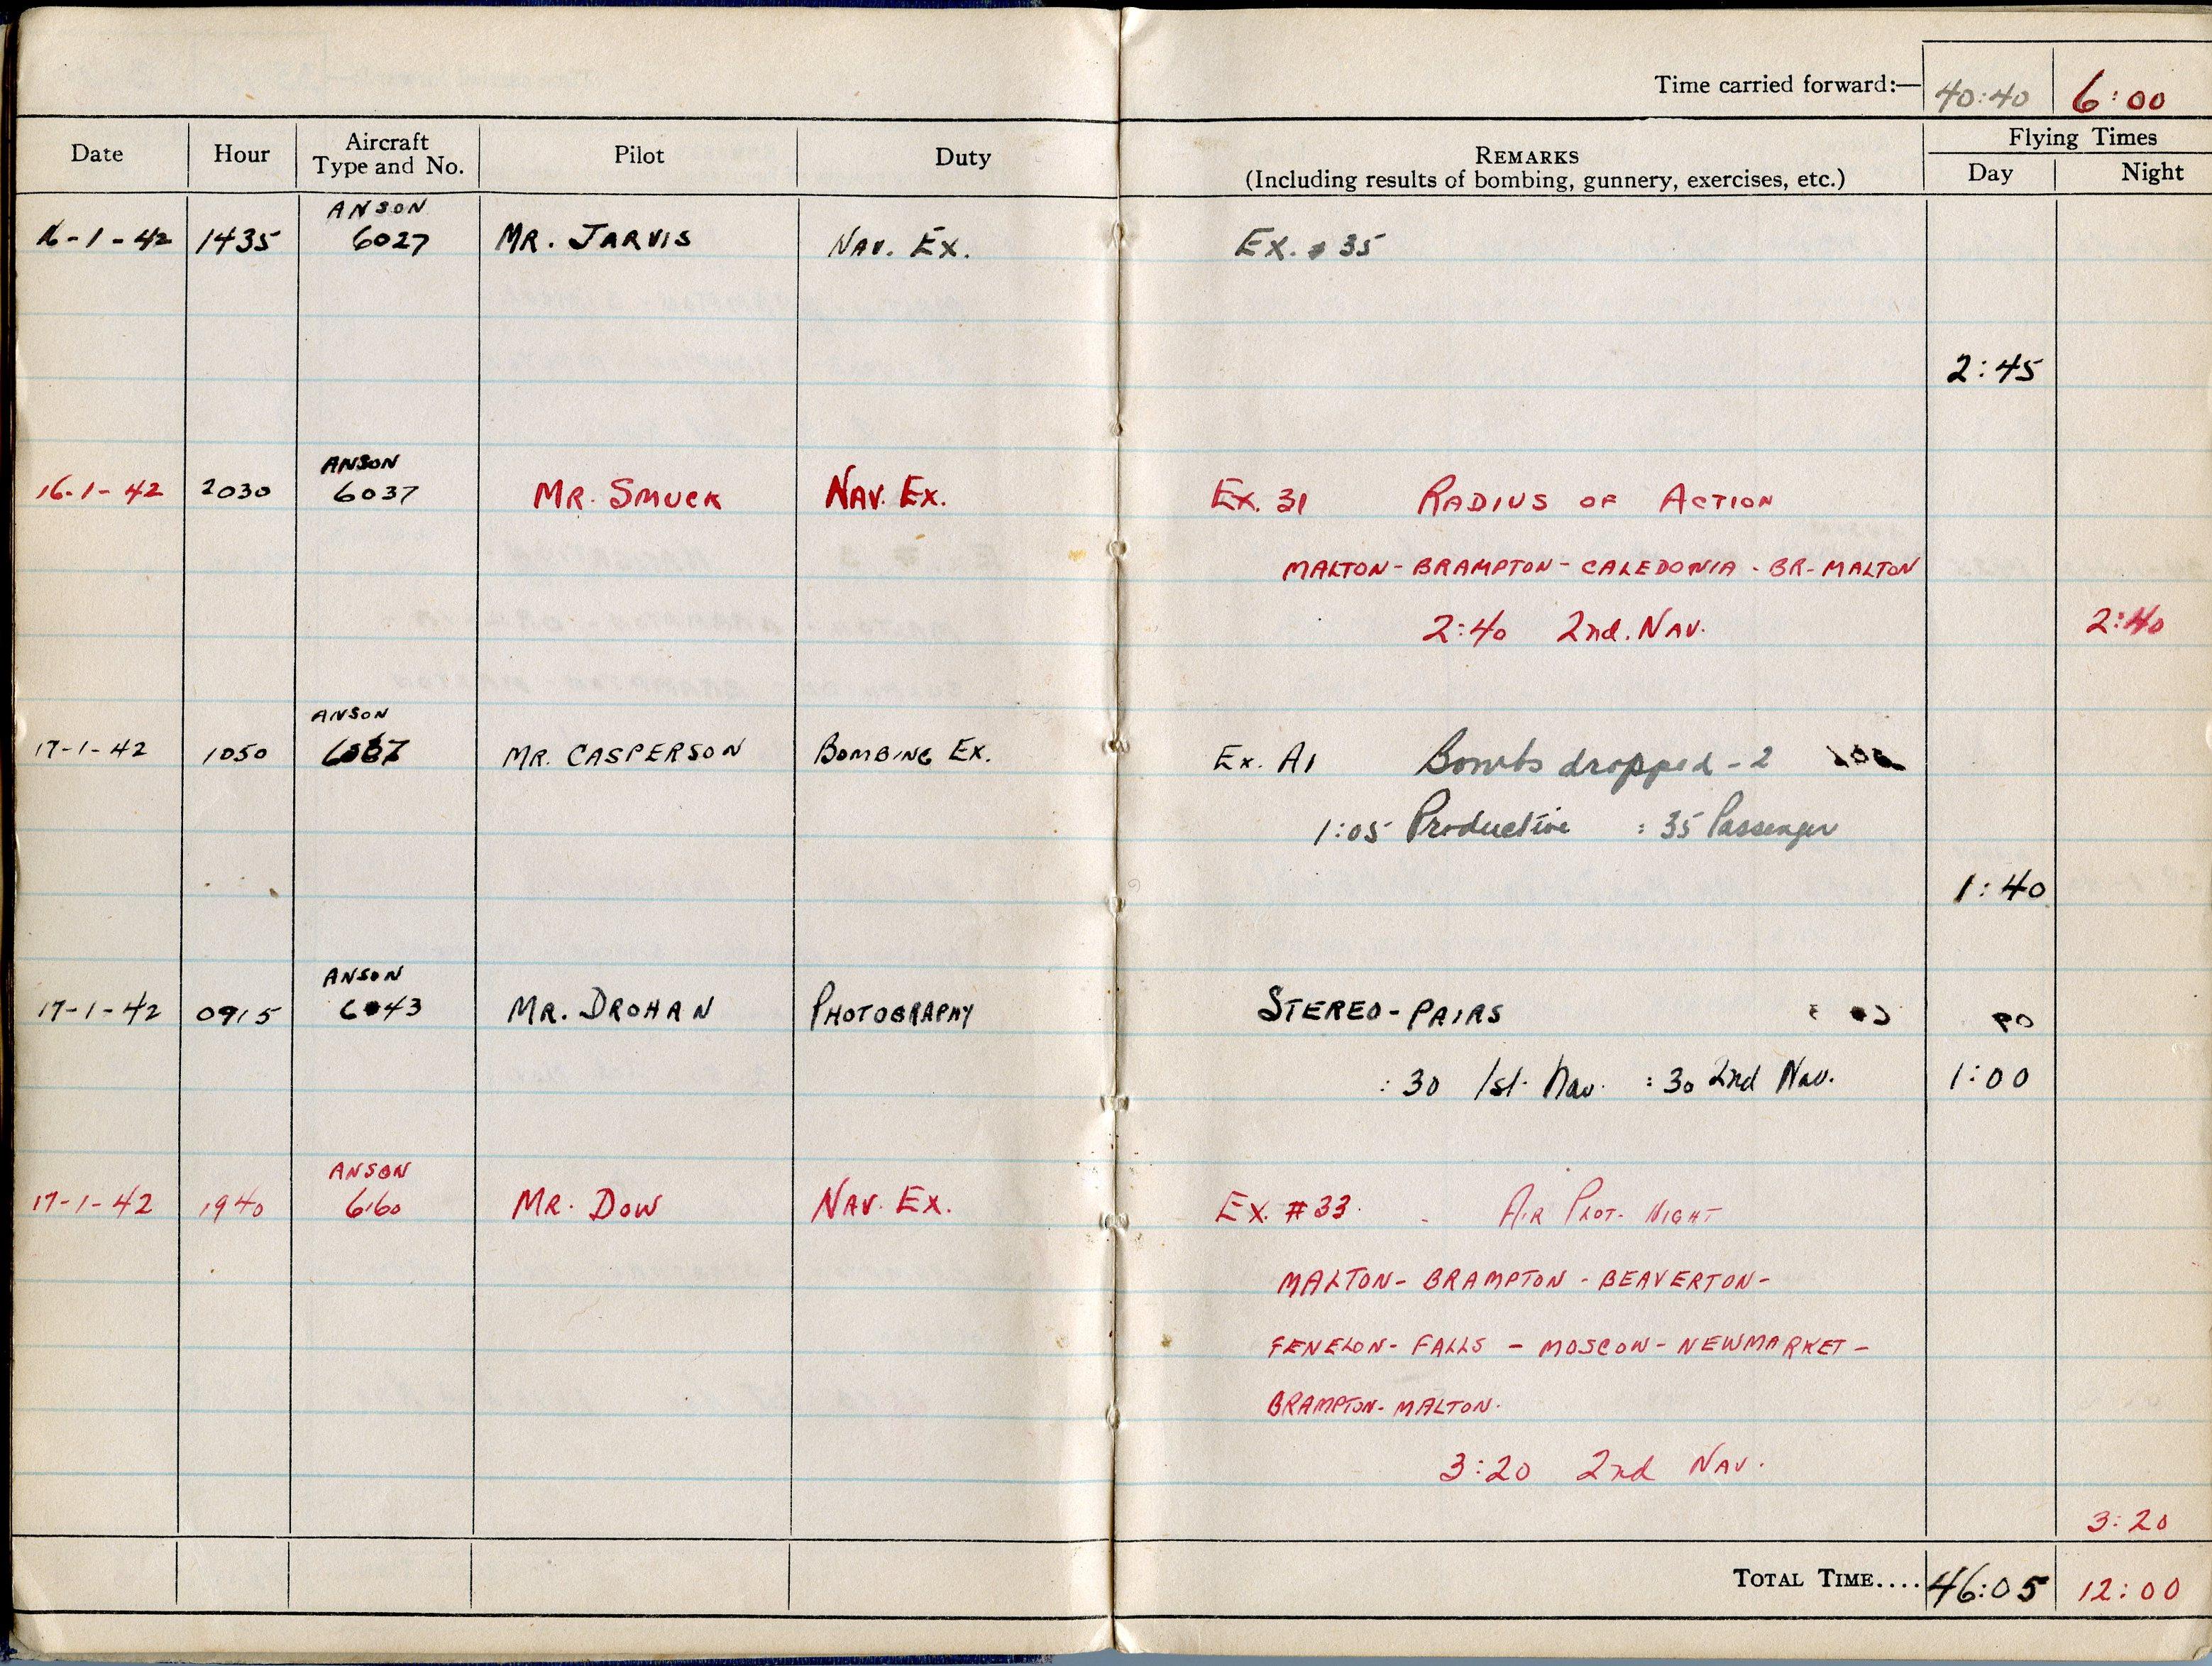 Time carried forward:— 40:40 6:00
Date Hour Aircraft Type and No. Pilot Duty REMARKS (Including results of bombing, gunnery, exercises, etc.) Flying Times Day Night
ANSON
16-1-42 1435 6027 MR. JARVIS NAV. EX. EX. # 35
2:45
ANSON
16-1-42 2030 6037 MR. SMUCK NAV. EX. EX. 31 RADIUS OF ACTION
MALTON - BRAMPTON - CALEDONIA - BR - MALTON
2:40 2nd. NAV. 2:40
ANSON
17-1-42 1050 MR. CASPERSON BOMBING EX. EX. A1 Bombs dropped - 2
1:05 Productive :35 Passenger
1:40
ANSON
17-1-42 0915 6043 MR. DROHAN PHOTOGRAPHY STEREO-PAIRS
:30 1st. Nav. :30 2nd Nav. 1:00
ANSON
17-1-42 1940 6160 MR. DOW NAV. EX. EX. #33. AIR PLOT. NIGHT
MALTON - BRAMPTON - BEAVERTON -
FENELON - FALLS - MOSCOW - NEWMARKET -
BRAMPTON - MALTON.
3:20 2nd NAV.
3:20
TOTAL TIME.... 46:05 12:00